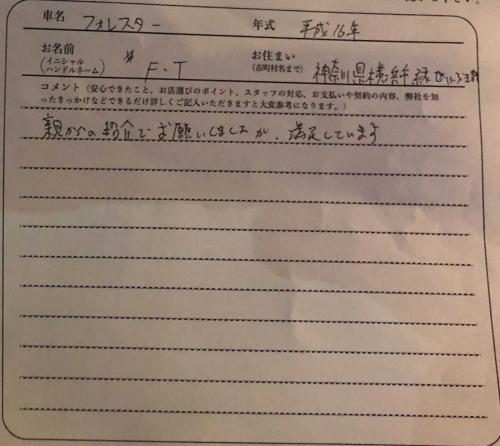 車名 フォレスター 年式 平成16年
お名前 お住まい
(イニシャル ハンドルネーム) F・T (市町村名まで) 神奈川県横浜
コメント(安心できたこと、お店選びのポイント、スタッフの対応、お支払いや契約の内容、弊社を知
ったきっかけなどできるだけ詳しくご記入いただきますと大変参考になります。)
親からの紹介でお願いしましたが、満足しています